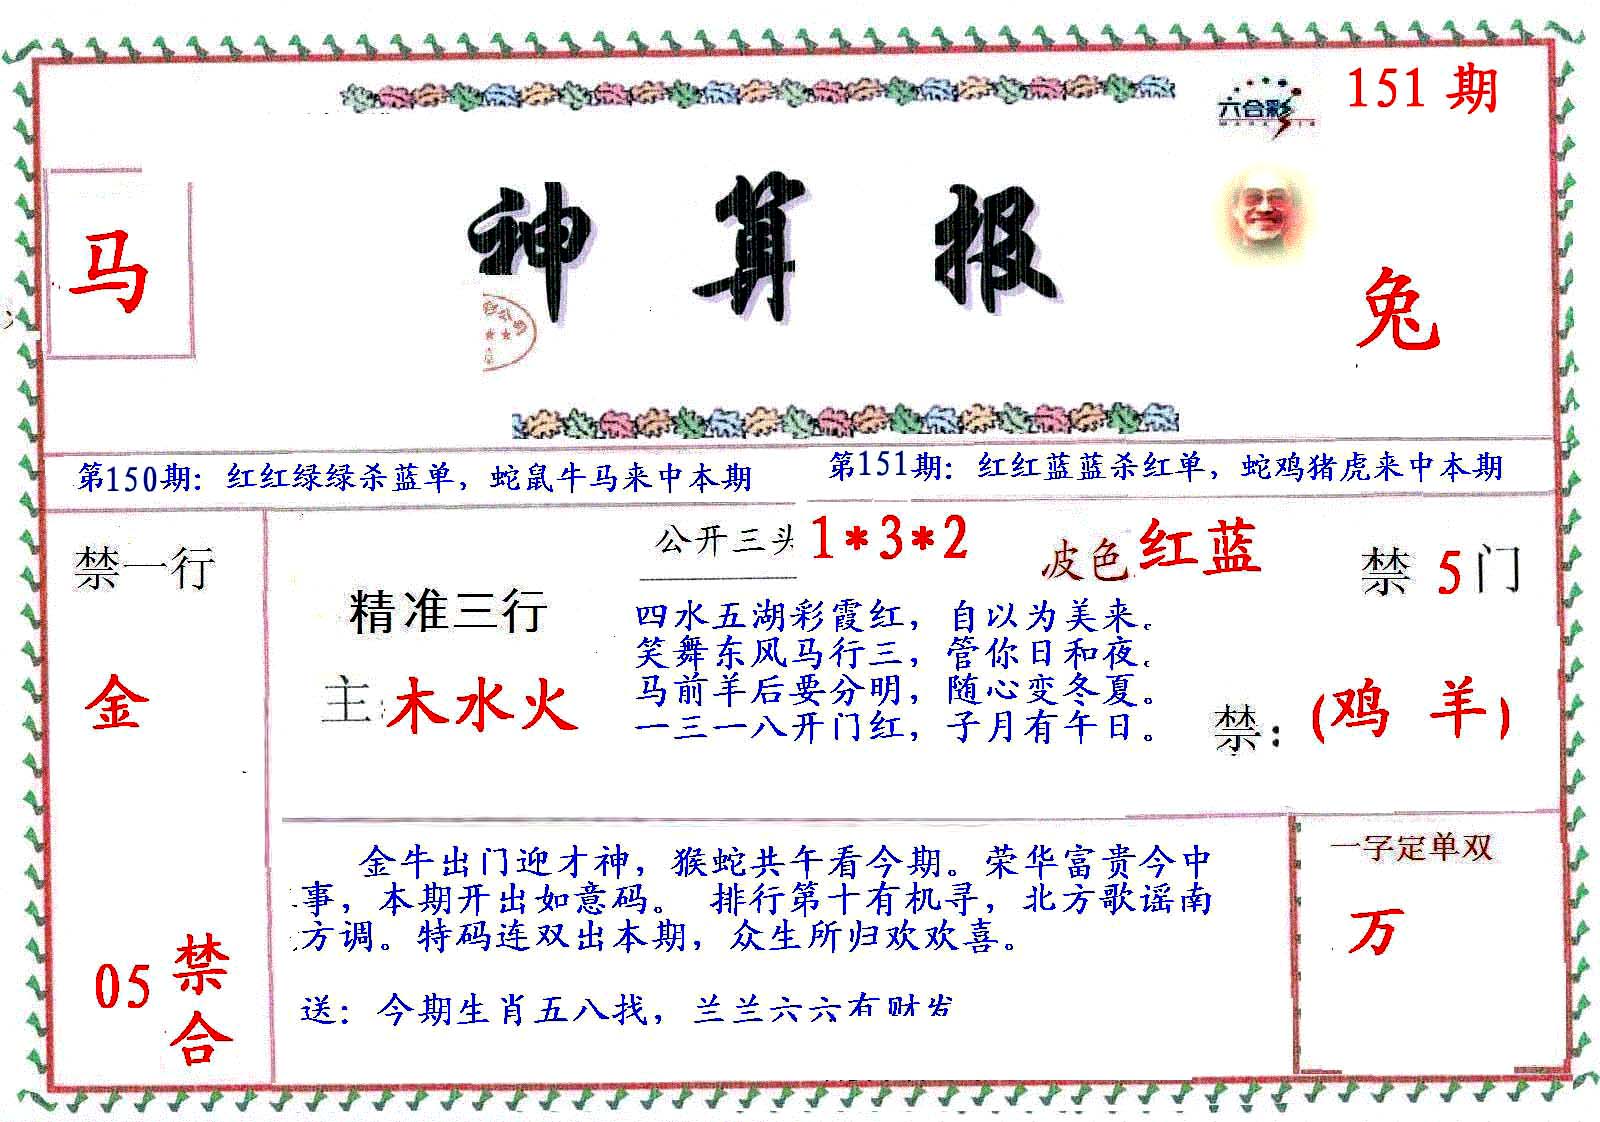 151 期
六合彩
马
神算报
兔
第150期：红红绿绿杀蓝单，蛇鼠牛马来中本期
第151期：红红蓝蓝杀红单，蛇鸡猪虎来中本期
禁一行
金
05 禁合
精准三行
主：木水火
公开三头 1*3*2
波色 红蓝
四水五湖彩霞红，自以为美来。
笑舞东风马行三，管你日和夜。
马前羊后要分明，随心变冬夏。
一三一八开门红，子月有午日。
禁 5 门
禁：(鸡 羊)
金牛出门迎才神，猴蛇共午看今期。荣华富贵今中
事，本期开出如意码。 排行第十有机寻，北方歌谣南
方调。特码连双出本期，众生所归欢欢喜。
送：今期生肖五八找，兰兰六六有财发
一字定单双
万